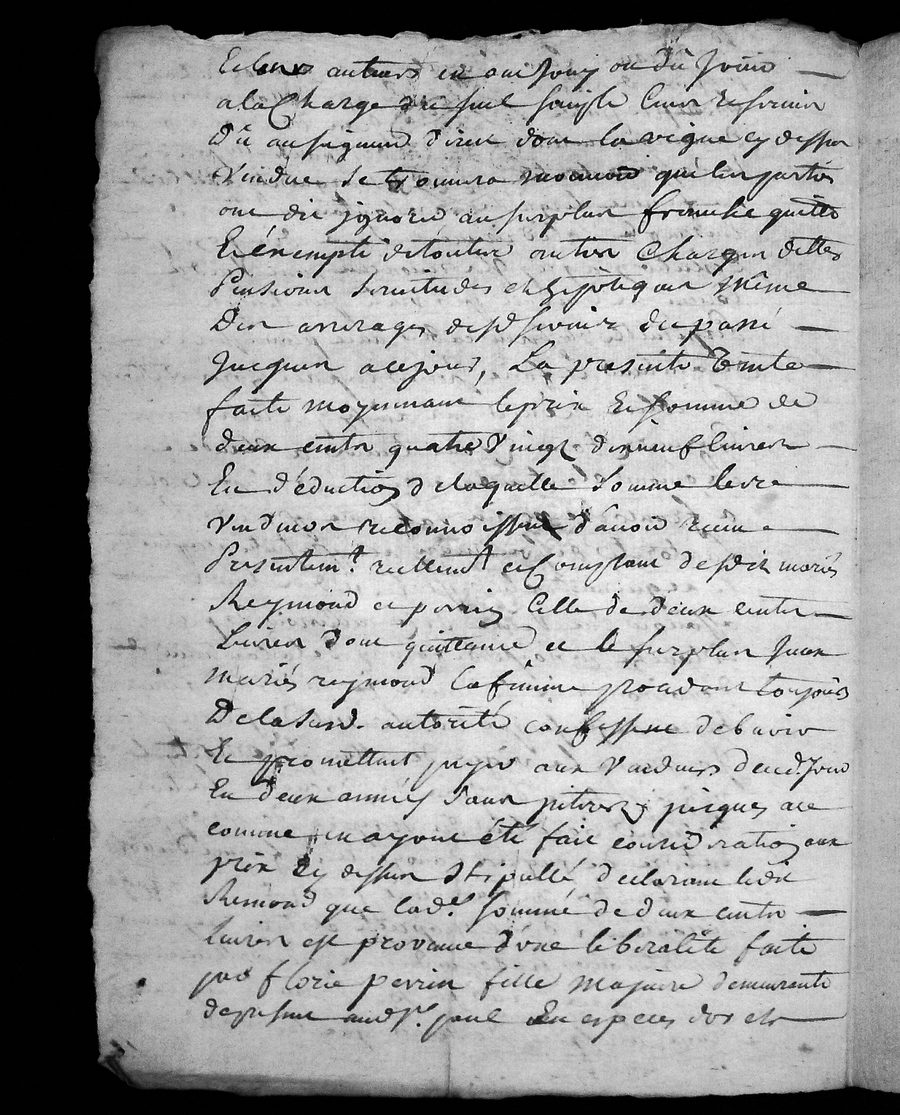 autheurs en ont jouy ou dû jouir
a la Charge du seul simple cens et servis
Dû au seigneur direct dont la vigne cy dessus
Vendue se trouvera mouvoir que les parties
ont dit ignorer au surplus franche quitte
Et exempte de toutes autres Charges dettes
Pensions servitudes et hipoteques Même
Des arrerages desd servis du passé
Jusques a ce jour, La presente Vente
faite moyennant le prix et somme de
deux cents quatre Vingt dixneuf livres
En déduction de laquelle somme lesd
Vendeurs reconnoissent d'avoir receu
Presentemt reellemt et Comptant desdits mariés
Reymond et perrin Celle de deux cents
Livres dont quittance et le surplus
mariés reymond la femme procedant toujours
De lasusd. autorité confessent debvoir
Et promettent payer aux Vendeurs
En deux années sans interez jusques a ce
comme en ayant été fait consideration aux
prix cy dessus stipullé declarant ledit
Remond que lade somme de deux cents
livres est provenue d'une liberalité faite
par florie perrin fille majeure demeurante
depresent audt St paul En especes d'or et